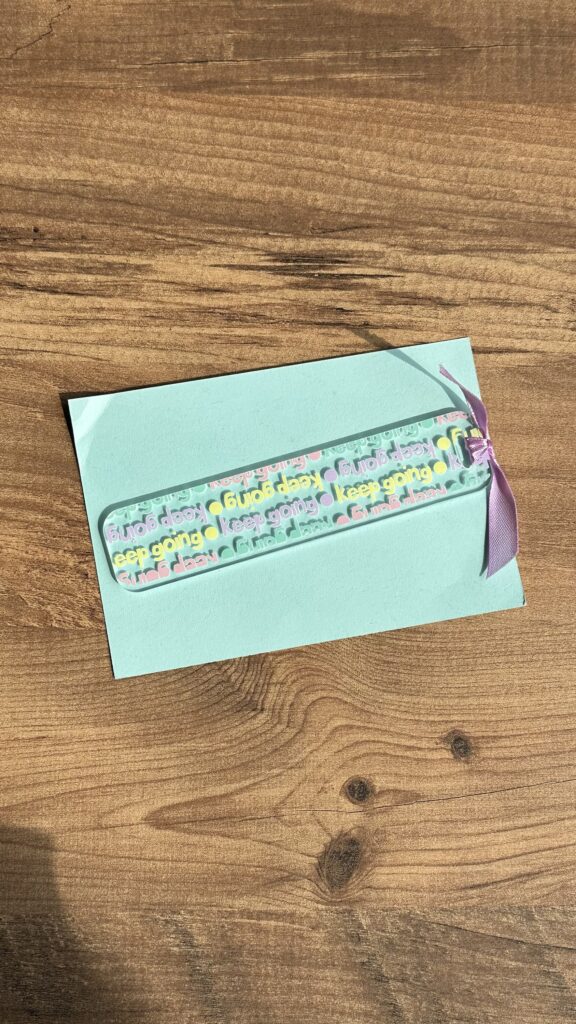 keep going keep going keep going
keep going ● keep going ● keep going ●
eep going ● keep going ● keep going ●
keep going ● keep going ● keep going ●